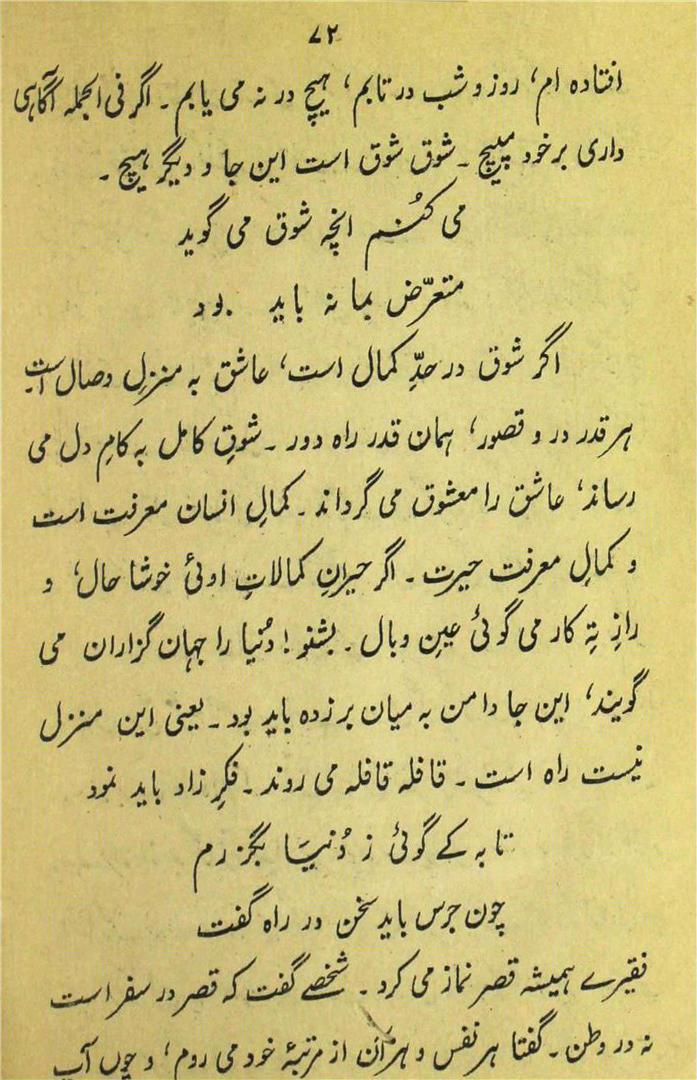 ۷۲
افتاده ام، روز و شب در تابم، ہیچ در نہ می یابم ۔ اگر فی الجملہ آگاہی
داری بر خود مپیچ ۔ شوق شوق است این جا و دیگر ہیچ ۔
می کُنم انچہ شوق می گوید
متعرّض بما نہ باید بود
اگر شوق در حدِّ کمال است، عاشق بہ منزلِ وصال است
ہر قدر در و قصور، ہمان قدر راہ دور ۔ شوقِ کامل بہ کامِ دل می
رساند، عاشق را معشوق می گرداند ۔ کمالِ انسان معرفت است
و کمالِ معرفت حیرت ۔ اگر حیرانِ کمالاتِ اوئی خوشا حال، و
رازِ تِہ کار می گوئی عینِ وبال ۔ بشنو! دُنیا را جہان گزاران می
گویند، این جا دامن بہ میان بر زدہ باید بود ۔ یعنی این منزل
نیست راہ است ۔ قافلہ قافلہ می روند ۔ فکرِ زاد باید نمود
تا بہ کے گوئی ز دُنیَا بگذرم
چون جرس باید سخن در راہ گفت
فقیرے ہمیشہ قصر نماز می کرد ۔ شخصے گفت کہ قصر در سفر است
نہ در وطن ۔ گفتا ہر نفس و ہر آن از مرتبۂ خود می روم، و چوں آب